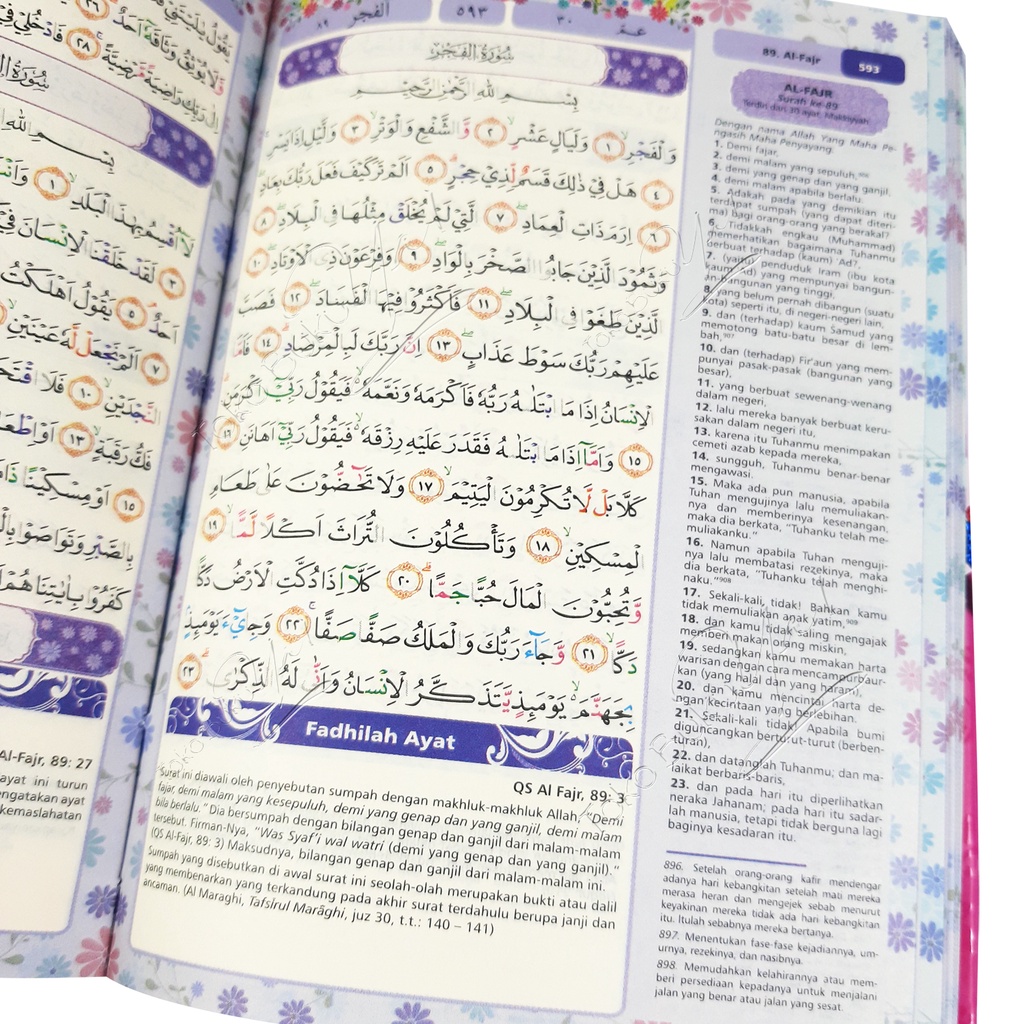 الفجر ٨٩
٥٩٣
عمّ ٣٠
سُوْرَةُ الْفَجْرِ
بِسْمِ اللّٰهِ الرَّحْمٰنِ الرَّحِيْمِ
وَالْفَجْرِۙ ١ وَلَيَالٍ عَشْرٍۙ ٢ وَّالشَّفْعِ وَالْوَتْرِۙ ٣ وَالَّيْلِ اِذَا يَسْرِۚ
٤ هَلْ فِيْ ذٰلِكَ قَسَمٌ لِّذِيْ حِجْرٍۗ ٥ اَلَمْ تَرَ كَيْفَ فَعَلَ رَبُّكَ بِعَادٍۖ
٦ اِرَمَ ذَاتِ الْعِمَادِۖ ٧ الَّتِيْ لَمْ يُخْلَقْ مِثْلُهَا فِى الْبِلَادِۖ ٨
وَثَمُوْدَ الَّذِيْنَ جَابُوا الصَّخْرَ بِالْوَادِۖ ٩ وَفِرْعَوْنَ ذِى الْاَوْتَادِۖ ١٠
الَّذِيْنَ طَغَوْا فِى الْبِلَادِۖ ١١ فَاَكْثَرُوْا فِيْهَا الْفَسَادَۖ ١٢ فَصَبَّ
عَلَيْهِمْ رَبُّكَ سَوْطَ عَذَابٍۖ ١٣ اِنَّ رَبَّكَ لَبِالْمِرْصَادِۗ ١٤ فَاَمَّا
الْاِنْسَانُ اِذَا مَا ابْتَلٰىهُ رَبُّهٗ فَاَكْرَمَهٗ وَنَعَّمَهٗۙ فَيَقُوْلُ رَبِّيْٓ اَكْرَمَنِۗ
١٥ وَاَمَّآ اِذَا مَا ابْتَلٰىهُ فَقَدَرَ عَلَيْهِ رِزْقَهٗۙ فَيَقُوْلُ رَبِّيْٓ اَهَانَنِۚ ١٦
كَلَّا بَلْ لَّا تُكْرِمُوْنَ الْيَتِيْمَۙ ١٧ وَلَا تَحٰۤضُّوْنَ عَلٰى طَعَامِ
الْمِسْكِيْنِۙ ١٨ وَتَأْكُلُوْنَ التُّرَاثَ اَكْلًا لَّمًّاۙ ١٩
وَّتُحِبُّوْنَ الْمَالَ حُبًّا جَمًّاۗ ٢٠ كَلَّآ اِذَا دُكَّتِ الْاَرْضُ دَكًّا
دَكًّاۙ ٢١ وَّجَآءَ رَبُّكَ وَالْمَلَكُ صَفًّا صَفًّاۚ ٢٢ وَجِايْۤءَ يَوْمَىِٕذٍۢ
بِجَهَنَّمَۙ يَوْمَىِٕذٍ يَّتَذَكَّرُ الْاِنْسَانُ وَاَنّٰى لَهُ الذِّكْرٰىۗ ٢٣
Fadhilah Ayat
QS Al Fajr, 89: 3
Surat ini diawali oleh penyebutan sumpah dengan makhluk-makhluk Allah, "Demi
fajar, demi malam yang kesepuluh, demi yang genap dan yang ganjil, demi malam
bila berlalu." Dia bersumpah dengan bilangan genap dan ganjil dari malam-malam
tersebut. Firman-Nya, "Was Syaf'i wal watri (demi yang genap dan yang ganjil)."
(QS Al-Fajr, 89: 3) Maksudnya, bilangan genap dan ganjil dari malam-malam ini.
Sumpah yang disebutkan di awal surat ini seolah-olah merupakan bukti atau dalil
yang membenarkan yang terkandung pada akhir surat terdahulu berupa janji dan
ancaman. (Al Maraghi, Tafsirul Marâghi, juz 30, t.t.: 140 – 141)
89. Al-Fajr 593
AL-FAJR
Surah ke-89
Terdiri dari 30 ayat. Makkiyyah
Dengan nama Allah Yang Maha Pe-
ngasih Maha Penyayang.
1. Demi fajar,
2. demi malam yang sepuluh,
3. demi yang genap dan yang ganjil,
4. demi malam apabila berlalu.
5. Adakah pada yang demikian itu
terdapat sumpah (yang dapat diteri-
ma) bagi orang-orang yang berakal?
6. Tidakkah engkau (Muhammad)
memerhatikan bagaimana Tuhanmu
berbuat terhadap (kaum) 'Ad?,
7. (yaitu) penduduk Iram (ibu kota
kaum 'Ad) yang mempunyai bangun-
an-bangunan yang tinggi,
8. yang belum pernah dibangun (suatu
kota) seperti itu, di negeri-negeri lain,
9. dan (terhadap) kaum Samud yang
memotong batu-batu besar di lem-
bah,⁹⁰⁷
10. dan (terhadap) Fir'aun yang mem-
punyai pasak-pasak (bangunan yang
besar),
11. yang berbuat sewenang-wenang
dalam negeri,
12. lalu mereka banyak berbuat keru-
sakan dalam negeri itu,
13. karena itu Tuhanmu menimpakan
cemeti azab kepada mereka,
14. sungguh, Tuhanmu benar-benar
mengawasi.
15. Maka ada pun manusia, apabila
Tuhan mengujinya lalu memuliakan-
nya dan memberinya kesenangan,
maka dia berkata, "Tuhanku telah me-
muliakanku."
16. Namun apabila Tuhan menguji-
nya lalu membatasi rezekinya, maka
dia berkata, "Tuhanku telah menghi-
naku."⁹⁰⁸
17. Sekali-kali tidak! Bahkan kamu
tidak memuliakan anak yatim,⁹⁰⁹
18. dan kamu tidak saling mengajak
memberi makan orang miskin,
19. sedangkan kamu memakan harta
warisan dengan cara mencampurbaur-
kan (yang halal dan yang haram),
20. dan kamu mencintai harta de-
ngan kecintaan yang berlebihan.
21. Sekali-kali tidak! Apabila bumi
diguncangkan berturut-turut (berben-
turan),
22. dan datanglah Tuhanmu; dan ma-
laikat berbaris-baris,
23. dan pada hari itu diperlihatkan
neraka Jahanam; pada hari itu sadar-
lah manusia, tetapi tidak berguna lagi
baginya kesadaran itu.
896. Setelah orang-orang kafir mendengar
adanya hari kebangkitan setelah mati mereka
merasa heran dan mengejek sebab menurut
keyakinan mereka tidak ada hari kebangkitan
itu. Itulah sebabnya mereka bertanya.
897. Menentukan fase-fase kejadiannya, um-
urnya, rezekinya, dan nasibnya.
898. Memudahkan kelahirannya atau mem-
beri persediaan kepadanya untuk menjalani
jalan yang benar atau jalan yang sesat.
Al-Fajr, 89: 27
ayat ini turun
ngatakan ayat
kemaslahatan